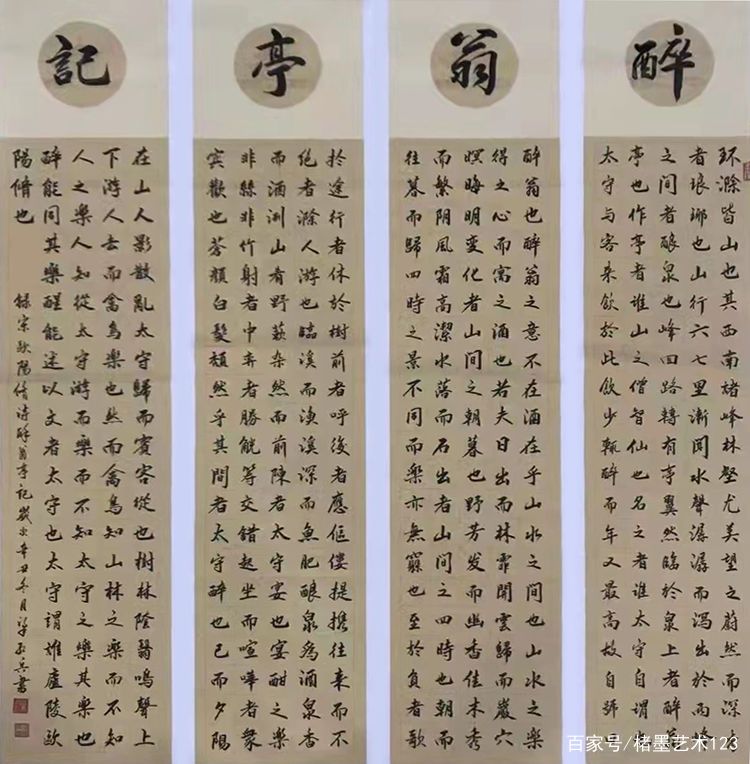 醉
环滁皆山也其西南諸峰林壑尤美望之蔚然而深秀
者琅琊也山行六七里漸聞水聲潺潺而瀉出於兩峰
之间者釀泉也峰回路轉有亭翼然臨於泉上者醉翁
亭也作亭者誰山之僧智仙也名之者誰太守自謂也
太守与客来飲於此飲少輒醉而年又最高故自號曰
翁
醉翁也醉翁之意不在酒在乎山水之间也山水之樂
得之心而寓之酒也若夫日出而林霏開雲歸而巖穴
暝晦明变化者山间之朝暮也野芳发而幽香佳木秀
而繁阴風霜高潔水落而石出者山间之四時也朝而
往暮而歸四時之景不同而樂亦無窮也至於負者歌
亭
於途行者休於樹前者呼後者應伛偻提携往来而不
绝者滁人游也臨溪而渔溪深而魚肥釀泉為酒泉香
而酒洌山肴野蔌杂然而前陳者太守宴也宴酣之樂
非絲非竹射者中弈者勝觥筹交錯起坐而喧嘩者衆
宾歡也蒼顔白髮頹然乎其間者太守醉也已而夕陽
記
在山人影散亂太守歸而賓客從也樹林陰翳鳴聲上
下游人去而禽鸟樂也然而禽鸟知山林之樂而不知
人之樂人知從太守游而樂而不知太守之樂其樂也
醉能同其樂醒能述以文者太守也太守謂誰廬陵歐
陽脩也
録宋歐陽脩诗醉翁亭記歲次辛丑冬月書
百家号/楮墨艺术123